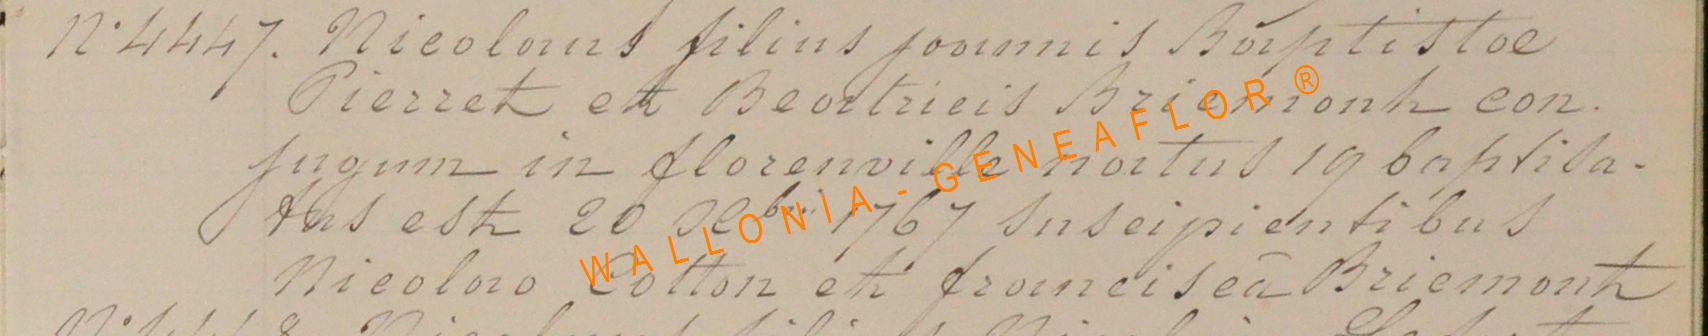 N° 4447. Nicolaus filius joannis Baptistae
Pierret et Beatricis Briemont con.
jugum in florenville natus 19 baptisa-
tus est 20 Xbris 1767 suscipientibus
Nicolao Cotton et franciscā Briemont
WALLONIA - GENEAFLOR ®